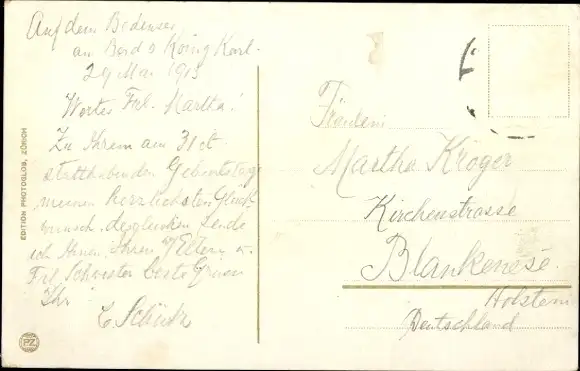 Auf dem Bodensee
an Bord d König Karl.
29 Mai 1913
Wertes Frl. Martha!
Zu Ihrem am 31 ct
stattfindenden Geburtstag
meinen herzlichsten Glück
wunsch, desgleichen sende
ich Ihnen, Ihren Eltern u.
Frl. Schwester beste Grüsse
Ihr
Fräulein
Martha Kröger
Kirchenstrasse
Blankenese.
Holstein
Deutschland
EDITION PHOTOGLOB, ZÜRICH
PZ